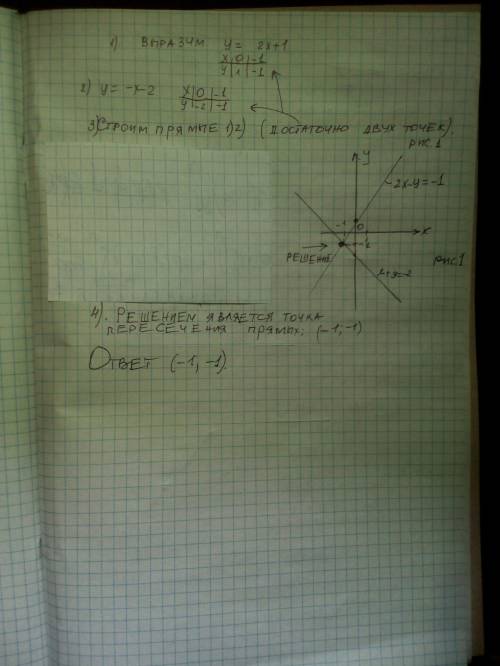 1) ВЫРАЗИМ y = 2x+1
x 0 -1
y 1 -1
2) y = -x-2
x 0 -1
y -2 -1
3) СТРОИМ ПРЯМЫЕ 1) 2) (ДОСТАТОЧНО ДВУХ ТОЧЕК).
РИС.1
y
2x-y=-1
-1
0
x
-2
РЕШЕНИЕ
РИС1
4). РЕШЕНИЕМ ЯВЛЯЕТСЯ ТОЧКА
ПЕРЕСЕЧЕНИЯ ПРЯМЫХ; (-1;-1)
ОТВЕТ (-1, -1).